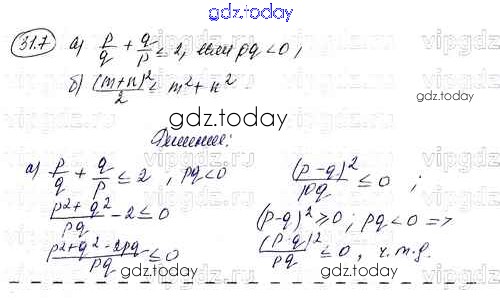 gdz.today
31.7 а) p/q + q/p ≤ 2, если pq < 0;
б) (m+n)²/2 ≤ m² + n²
gdz.today
gdz.today
Решение:
а) p/q + q/p ≤ 2 ; pq < 0
(p² + q²)/pq - 2 ≤ 0
(p² + q² - 2pq)/pq ≤ 0
(p - q)²/pq ≤ 0 ;
(p - q)² ≥ 0 ; pq < 0 =>
(p - q)²/pq ≤ 0, ч.т.д.
gdz.today
gdz.today